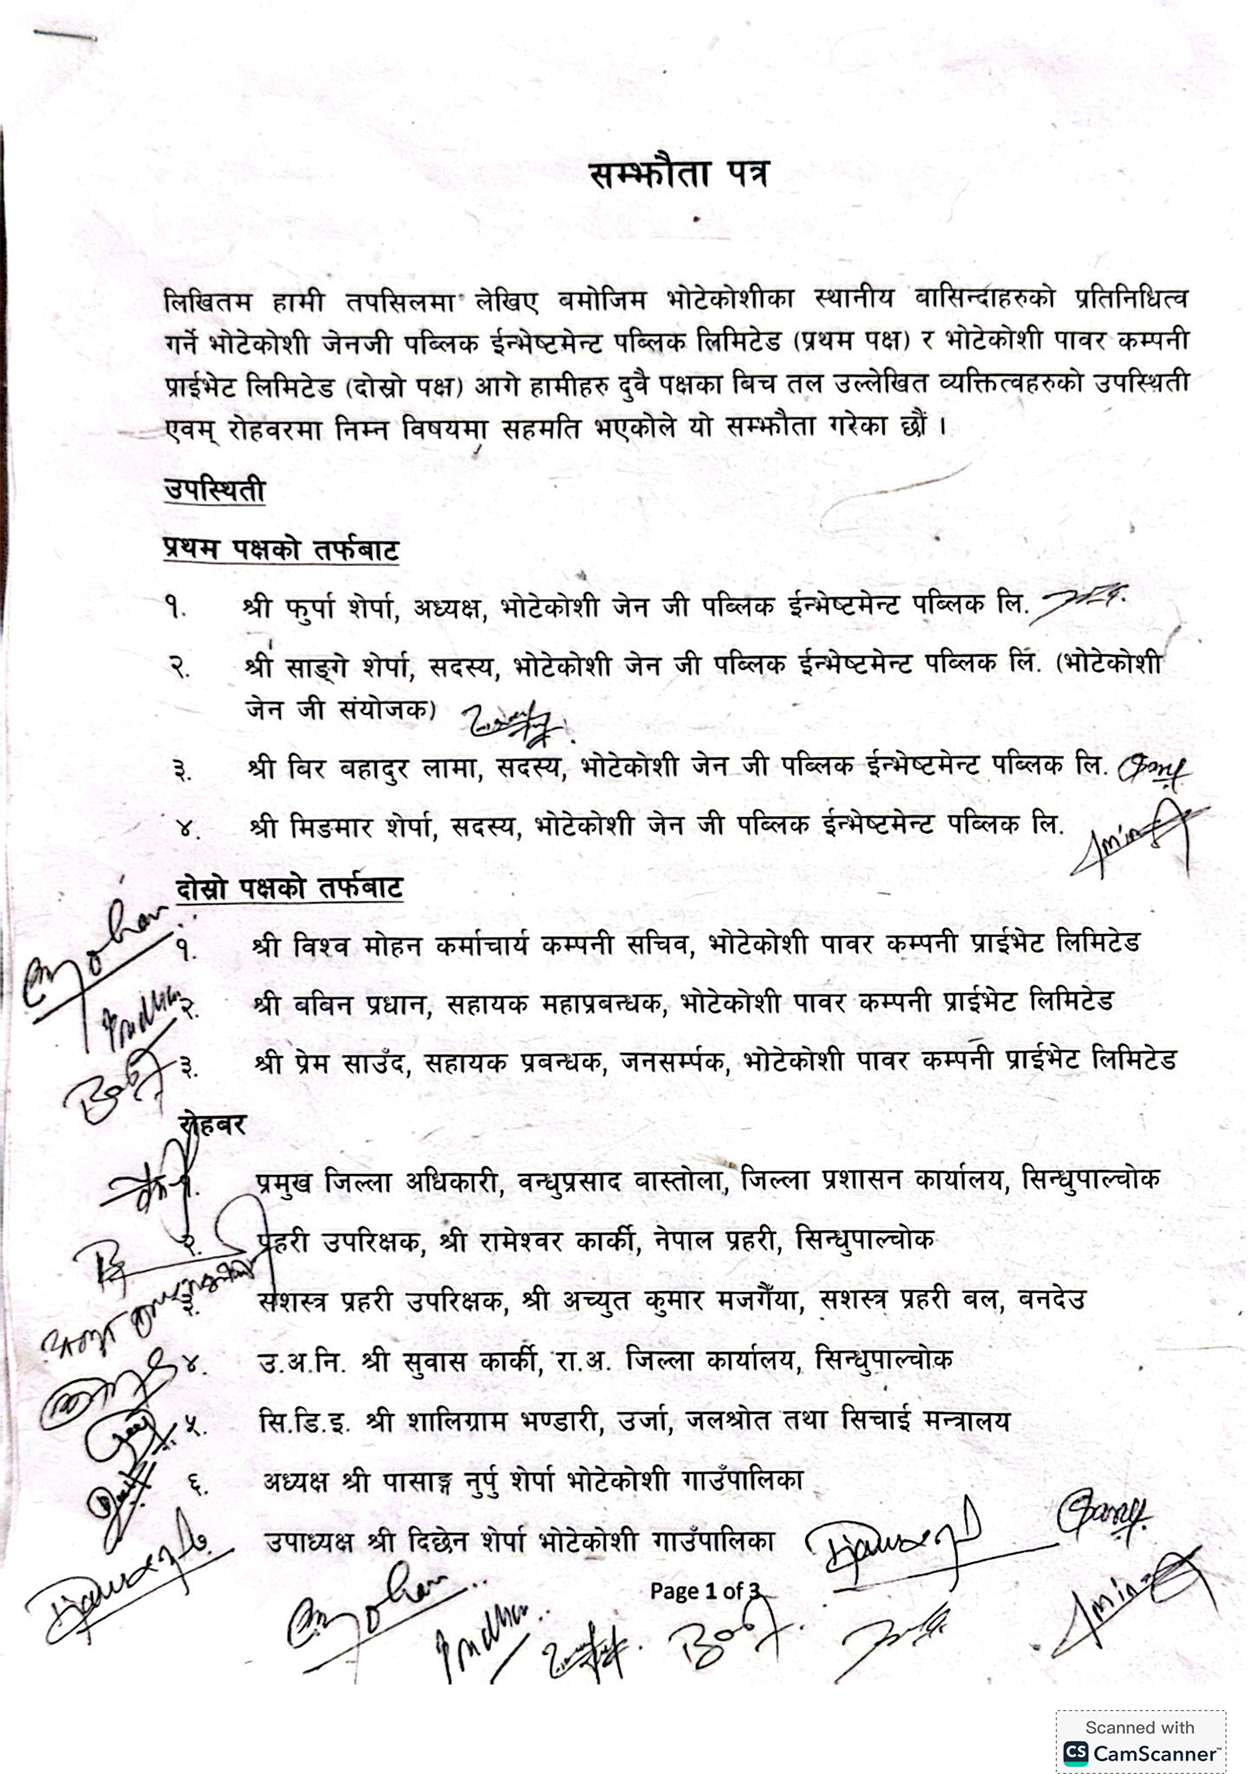 सम्झौता पत्र
लिखितम हामी तपसिलमा लेखिए बमोजिम भोटेकोशीका स्थानीय बासिन्दाहरुको प्रतिनिधित्व
गर्ने भोटेकोशी जेनजी पब्लिक ईन्भेष्टमेन्ट पब्लिक लिमिटेड (प्रथम पक्ष) र भोटेकोशी पावर कम्पनी
प्राईभेट लिमिटेड (दोस्रो पक्ष) आगे हामीहरु दुवै पक्षका बिच तल उल्लेखित व्यक्तित्वहरुको उपस्थिती
एवम् रोहवरमा निम्न विषयमा सहमति भएकोले यो सम्झौता गरेका छौं ।
उपस्थिती
प्रथम पक्षको तर्फबाट
१. श्री फुर्पा शेर्पा, अध्यक्ष, भोटेकोशी जेन जी पब्लिक ईन्भेष्टमेन्ट पब्लिक लि.
२. श्री साङ्गे शेर्पा, सदस्य, भोटेकोशी जेन जी पब्लिक ईन्भेष्टमेन्ट पब्लिक लि. (भोटेकोशी
जेन जी संयोजक)
३. श्री बिर बहादुर लामा, सदस्य, भोटेकोशी जेन जी पब्लिक ईन्भेष्टमेन्ट पब्लिक लि.
४. श्री मिङमार शेर्पा, सदस्य, भोटेकोशी जेन जी पब्लिक ईन्भेष्टमेन्ट पब्लिक लि.
दोस्रो पक्षको तर्फबाट
१. श्री विश्व मोहन कर्माचार्य कम्पनी सचिव, भोटेकोशी पावर कम्पनी प्राईभेट लिमिटेड
२. श्री बबिन प्रधान, सहायक महाप्रबन्धक, भोटेकोशी पावर कम्पनी प्राईभेट लिमिटेड
३. श्री प्रेम साउँद, सहायक प्रबन्धक, जनसर्म्पक, भोटेकोशी पावर कम्पनी प्राईभेट लिमिटेड
रोहबर
१. प्रमुख जिल्ला अधिकारी, वन्धुप्रसाद वास्तोला, जिल्ला प्रशासन कार्यालय, सिन्धुपाल्चोक
२. प्रहरी उपरिक्षक, श्री रामेश्वर कार्की, नेपाल प्रहरी, सिन्धुपाल्चोक
३. सशस्त्र प्रहरी उपरिक्षक, श्री अच्युत कुमार मजगैँया, सशस्त्र प्रहरी वल, वनदेउ
४. उ.अ.नि. श्री सुवास कार्की, रा.अ. जिल्ला कार्यालय, सिन्धुपाल्चोक
५. सि.डि.इ. श्री शालिग्राम भण्डारी, उर्जा, जलश्रोत तथा सिचाई मन्त्रालय
६. अध्यक्ष श्री पासाङ्ग नुर्पु शेर्पा भोटेकोशी गाउँपालिका
७. उपाध्यक्ष श्री दिछेन शेर्पा भोटेकोशी गाउँपालिका
Page 1 of 3
Scanned with
CS CamScanner